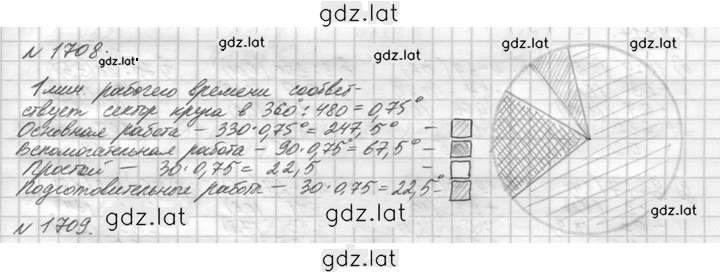 gdz.lat
N 1708.
gdz.lat
gdz.lat
gdz.lat
gdz.lat
1 мин. рабочего времени соответ-
ствует сектор круга в 360° : 480 = 0,75°
Основная работа – 330·0,75° = 247,5° –
Вспомогательная работа – 90·0,75° = 67,5° –
Простой – 30·0,75 = 22,5 –
Подготовительные работа – 30·0,75 = 22,5° –
N 1709.
gdz.lat
gdz.lat
gdz.lat
gdz.lat